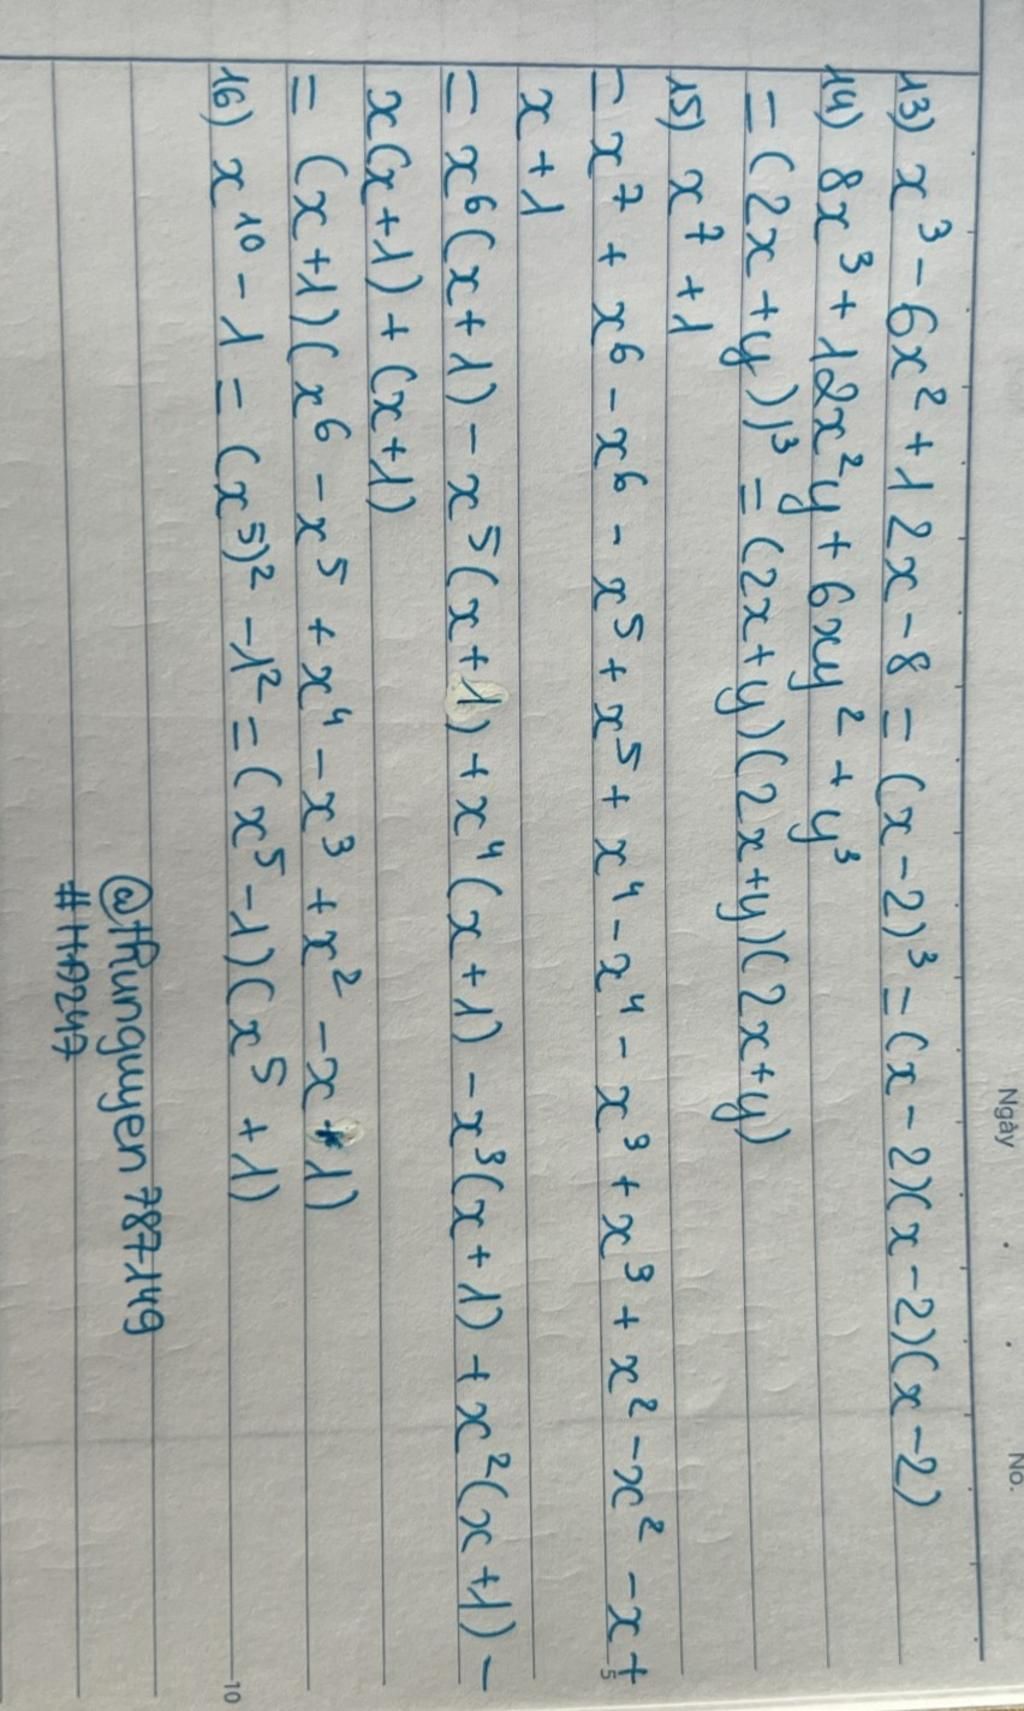 Ngày
No.
13) x³ - 6x² + 12x - 8 = (x - 2)³ = (x - 2)(x - 2)(x - 2)
14) 8x³ + 12x²y + 6xy² + y³
= (2x + y)³ = (2x + y)(2x + y)(2x + y)
15) x⁷ + 1
= x⁷ + x⁶ - x⁶ - x⁵ + x⁵ + x⁴ - x⁴ - x³ + x³ + x² - x² - x +
5
x + 1
= x⁶(x + 1) - x⁵(x + 1) + x⁴(x + 1) - x³(x + 1) + x²(x + 1) -
x(x + 1) + (x + 1)
= (x + 1)(x⁶ - x⁵ + x⁴ - x³ + x² - x + 1)
16) x¹⁰ - 1 = (x⁵)² - 1² = (x⁵ - 1)(x⁵ + 1)
10
@thunguyen787149
#HD247